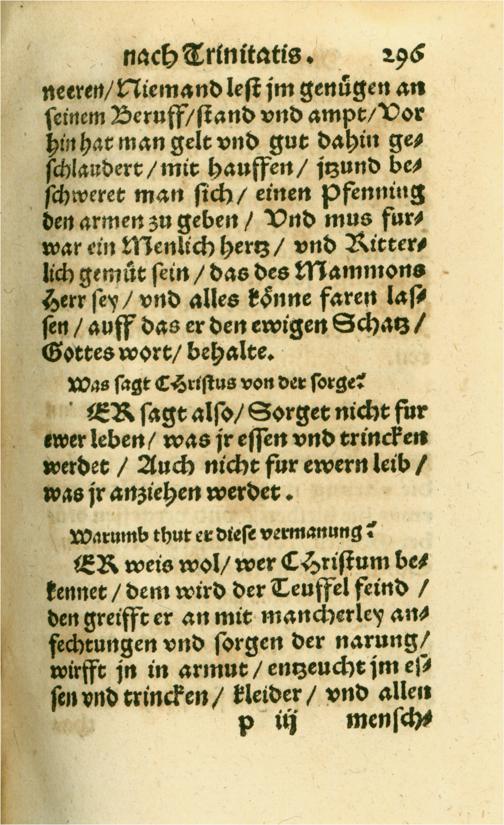 nach Trinitatis. 296
neeren/Niemand lest jm genügen an
seinem Beruff/stand vnd ampt/Vor
hin hat man gelt vnd gut dahin ge⸗
schlaudert/mit hauffen/jtzund be⸗
schweret man sich/einen Pfenning
den armen zu geben/Vnd mus fur⸗
war ein Menlich hertz/vnd Ritter⸗
lich gemüt sein/das des Mammons
Herr sey/vnd alles könne faren las⸗
sen/auff das er den ewigen Schatz/
Gottes wort/behalte.
Was sagt CHristus von der sorge?
ER sagt also/Sorget nicht fur
ewer leben/was jr essen vnd trincken
werdet/Auch nicht fur ewern leib/
was jr anziehen werdet.
Warumb thut er diese vermanung?
ER weis wol/wer CHristum be⸗
kennet/dem wird der Teuffel feind/
den greifft er an mit mancherley an⸗
fechtungen vnd sorgen der narung/
wirfft jn in armut/entzeucht jm es⸗
sen vnd trincken/kleider/vnd allen
p iij mensch⸗